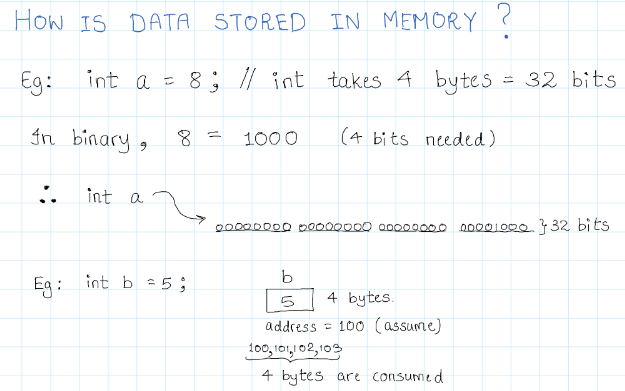 HOW IS DATA STORED IN MEMORY ?
Eg: int a = 8; // int takes 4 bytes = 32 bits
In binary, 8 = 1000 (4 bits needed)
∴ int a
00000000 00000000 00000000 00001000 } 32 bits
Eg: int b = 5;
b
5 4 bytes.
address = 100 (assume)
100,101,102,103
4 bytes are consumed